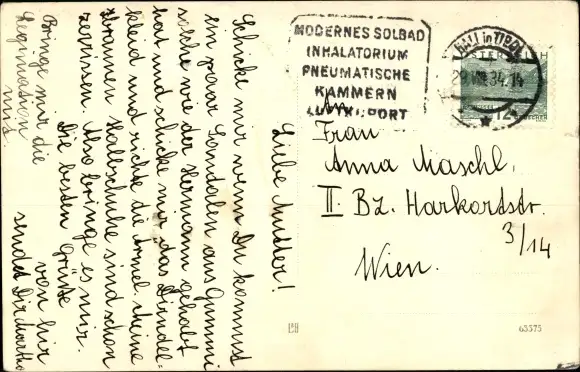 MODERNES SOLBAD
INHALATORIUM
PNEUMATISCHE
KAMMERN
LUFTKURORT
HALL in TIROL
34.14
12
An
Frau
Anna Maschl.
II. Bz. Harkortstr.
3/14
Wien.
65575
Liebe Mutter!
Schicke mir wenn Du kannst
ein paar Sandalen aus Gummi
solche wie der Hermann gehabt
hat und schicke mir das Dirndel=
kleid und richte die Ärmel. Meine
braunen Halbschuhe sind schon
zerrissen. Also bringe es mir.
Die besten Grüße
von hir
sendet Dir
Bringe mir die
Legimation
mit.